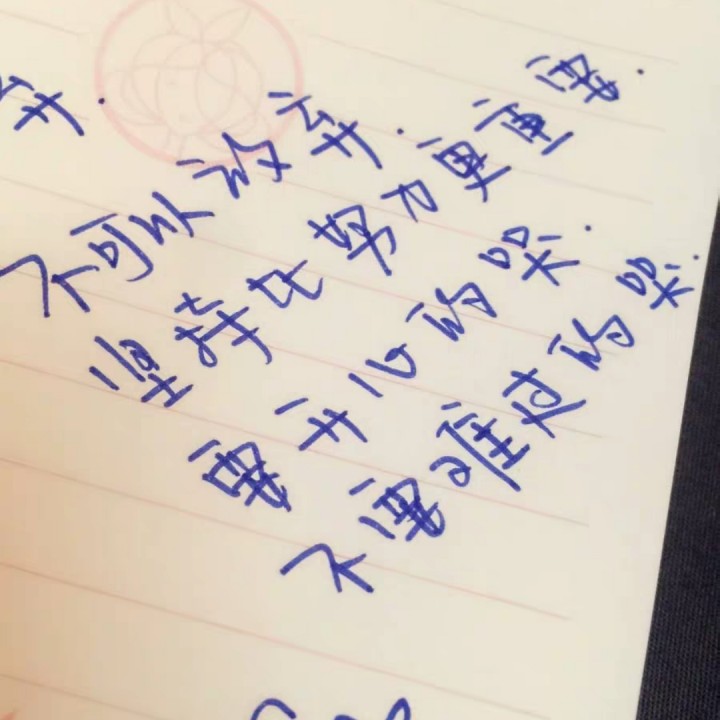 弃.
不可以放弃.
坚持比努力更重要.
要开心的哭.
不要难过的哭.